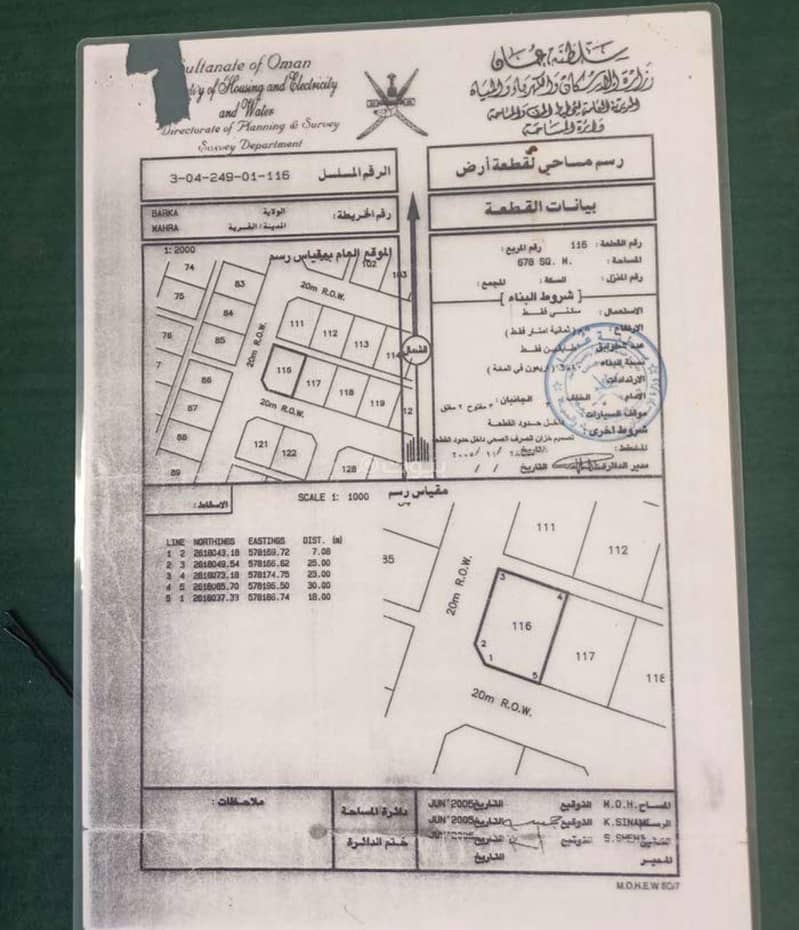 Sultanate of Oman
of Housing and Electricity
and Water
Directorate of Planning & Survey
Survey Department
سلطنة عمان
وزارة الإسكان والكهرباء والمياه
المديرية العامة للتخطيط والمساحة
دائرة المساحة
رسم مساحي لقطعة أرض
الرقم المسلسل 3-04-249-01-116
بيانات القطعة
رقم الخريطة:
الولاية BARKA
المدينة/القرية MAHRA
رقم القطعة: 116 رقم المربع:
المساحة: 678 SQ. M.
رقم المنزل: السكة: المجمع:
[ شروط البناء ]
الاستعمال: سكني فقط
الارتفاع: (ثمانية امتار فقط)
فقط
نسبة البناء: (اربعون في المئة)
الارتدادات:
الامام: الخلف: الجانبان: ٣ مفتوح ٢ مغلق
موقف السيارات: داخل حدود القطعة
شروط اخرى: تصميم خزان الصرف الصحي داخل حدود القطعة
المخطط: التاريخ:
مدير الدائرة التاريخ / /
الموقع العام بمقياس رسم 1: 2000
74
75
76
7
83
84
85
86
87
88
89
102
103
20m R.O.W.
20m R.O.W.
111
112
113
114
116
117
118
119
12
20m R.O.W.
121
122
128
الشمال
مقياس رسم SCALE 1: 1000
الاسقاط:
LINE NORTHINGS EASTINGS DIST. (m)
1 2 2618043.18 578169.72 7.08
2 3 2618049.54 578166.62 25.00
3 4 2618073.18 578174.75 23.00
4 5 2618065.70 578196.50 30.00
5 1 2618037.33 578186.74 18.00
85
20m R.O.W.
111
112
3
4
116
2
1
5
117
118
20m R.O.W.
ملاحظات:
دائرة المساحة
ختم الدائرة
المساح M.O.H. التوقيع التاريخ JUN'2005
الرسام K.SINAM التوقيع التاريخ JUN'2005
التوقيع التاريخ
المدير التاريخ
M.O.H.E.W 8C/7